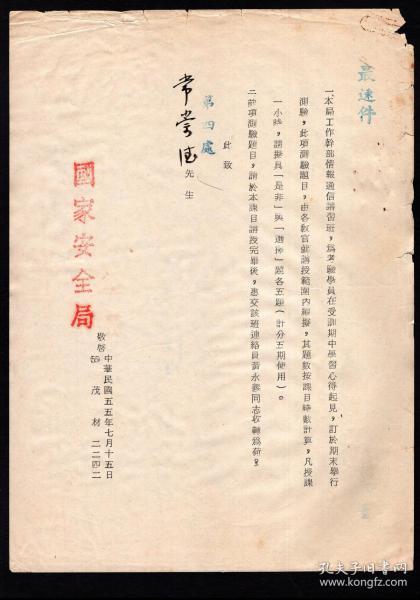 最速件
一、本局工作幹部情報通信講習班，為考驗學員在受訓期中學習心得起見，訂於期末舉行
測驗，此項測驗題目，由各教官就講授範圍內編擬，其題數按課目時數計算，凡授課
一小時，請擬具「是非」與「選擇」題各五題（計分五期使用）。
二、前項測驗題目，請於本課目講授完畢後，惠交該班連絡員黃永 同志收轉為荷。
此致
常 德 先生
第四處
國家安全局
敬啓
中華民國五五年七月十五日
茂材 二二四二
孔夫子旧书网
www.kongfz.com